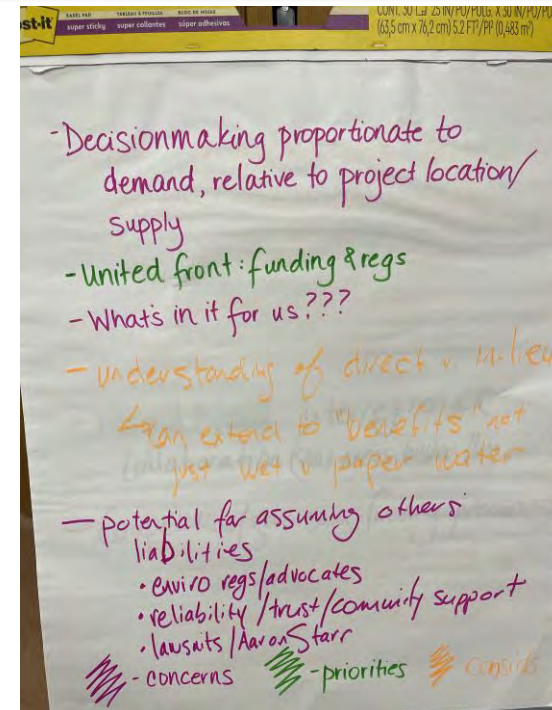 st-it
EASEL PAD
TABLEAU À FEUILLES
BLOC DE HOJAS
super sticky super collantes súper adhesivos
(63,5 cm x 76,2 cm) 5.2 FT²/PI² (0,483 m²)
-Decisionmaking proportionate to
demand, relative to project location/
supply
-United front: funding & regs
- What's in it for us???
- understanding of direct v. in-lieu
can extend to "benefits" not
just wet v paper water
- potential for assuming others'
liabilities
• enviro regs/advocates
• reliability/trust/comunity support
• lawsuits/Aaron Starr
- concerns -priorities